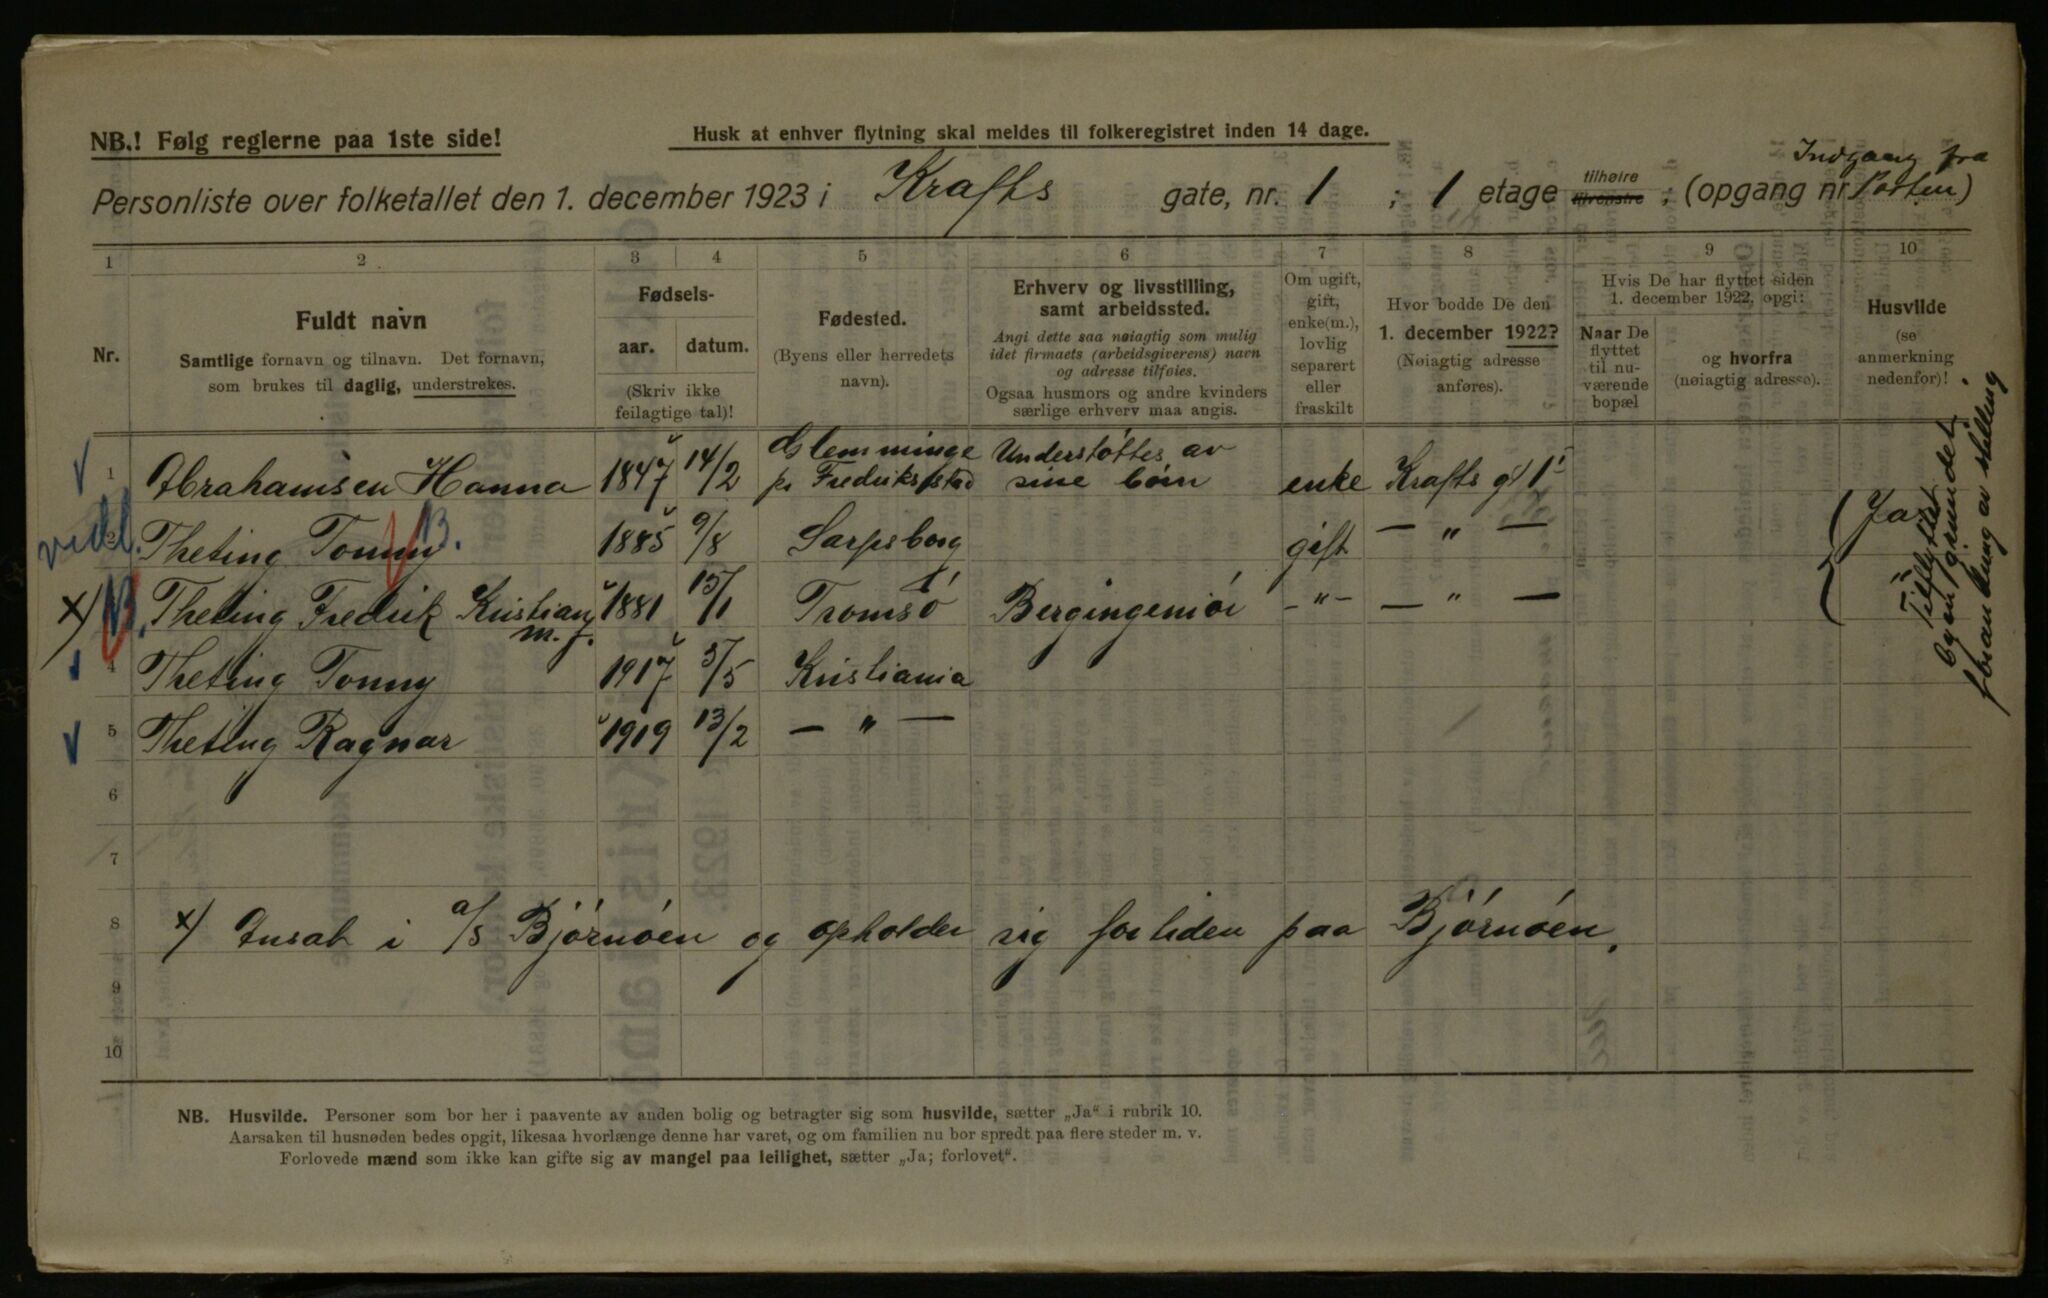 NB.! Følg reglerne paa 1ste side!
Husk at enhver flytning skal meldes til folkeregistret inden 14 dage.
Indgang fra
Personliste over folketallet den 1. december 1923 i Krafts gate, nr. 1 ; 1 etage tilhøire tilvenstre ; (opgang nr. Porten)
1 2 3 4 5 6 7 8 9 10
Nr.
Fuldt navn
Samtlige fornavn og tilnavn. Det fornavn,
som brukes til daglig, understrekes.
Fødsels-
aar. datum.
(Skriv ikke
feilagtige tal)!
Fødested.
(Byens eller herredets
navn).
Erhverv og livsstilling,
samt arbeidssted.
Angi dette saa nøiagtig som mulig
idet firmaets (arbeidsgiverens) navn
og adresse tilføies.
Ogsaa husmors og andre kvinders
særlige erhverv maa angis.
Om ugift,
gift,
enke(m.),
lovlig
separert
eller
fraskilt
Hvor bodde De den
1. december 1922?
(Nøiagtig adresse
anføres).
Hvis De har flyttet siden
1. december 1922, opgi:
Naar De
flyttet
til nu-
værende
bopæl
og hvorfra
(nøiagtig adresse).
Husvilde
(se
anmerkning
nedenfor)!
1 Abrahamsen Hanna 1847 14/2 Glemminge pr Fredriksstad Understøttes av sine børn enke Krafts gt 1 I
2 Theting Tonny B. 1885 9/8 Sarpsborg gift — " — Ja
x) B. Theting Fredrik Kristian m. f. 1881 15/1 Tromsø Bergingeniør -"- — " —
4 Theting Tonny 1917 5/5 Kristiania
5 Theting Ragnar 1919 13/2 — " —
Tilflyttet
byen grundet
forandring av stilling
6
7
8 x) Ansat i a/s Bjørnøen og opholder sig for tiden paa Bjørnøen.
9
10
NB. Husvilde. Personer som bor her i paavente av anden bolig og betragter sig som husvilde, sætter „Ja“ i rubrik 10.
Aarsaken til husnøden bedes opgit, likesaa hvorlænge denne har varet, og om familien nu bor spredt paa flere steder m. v.
Forlovede mænd som ikke kan gifte sig av mangel paa leilighet, sætter „Ja; forlovet“.